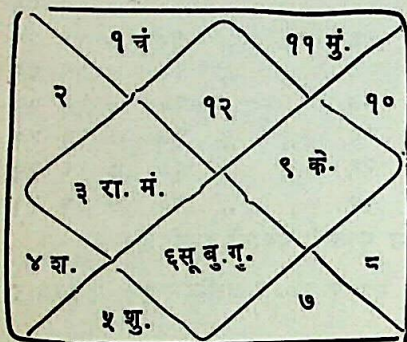 १ चं
११ मुं.
२
१२
१०
३ रा. मं.
९ के.
४ श.
६सू बु.गु.
८
५ शु.
७